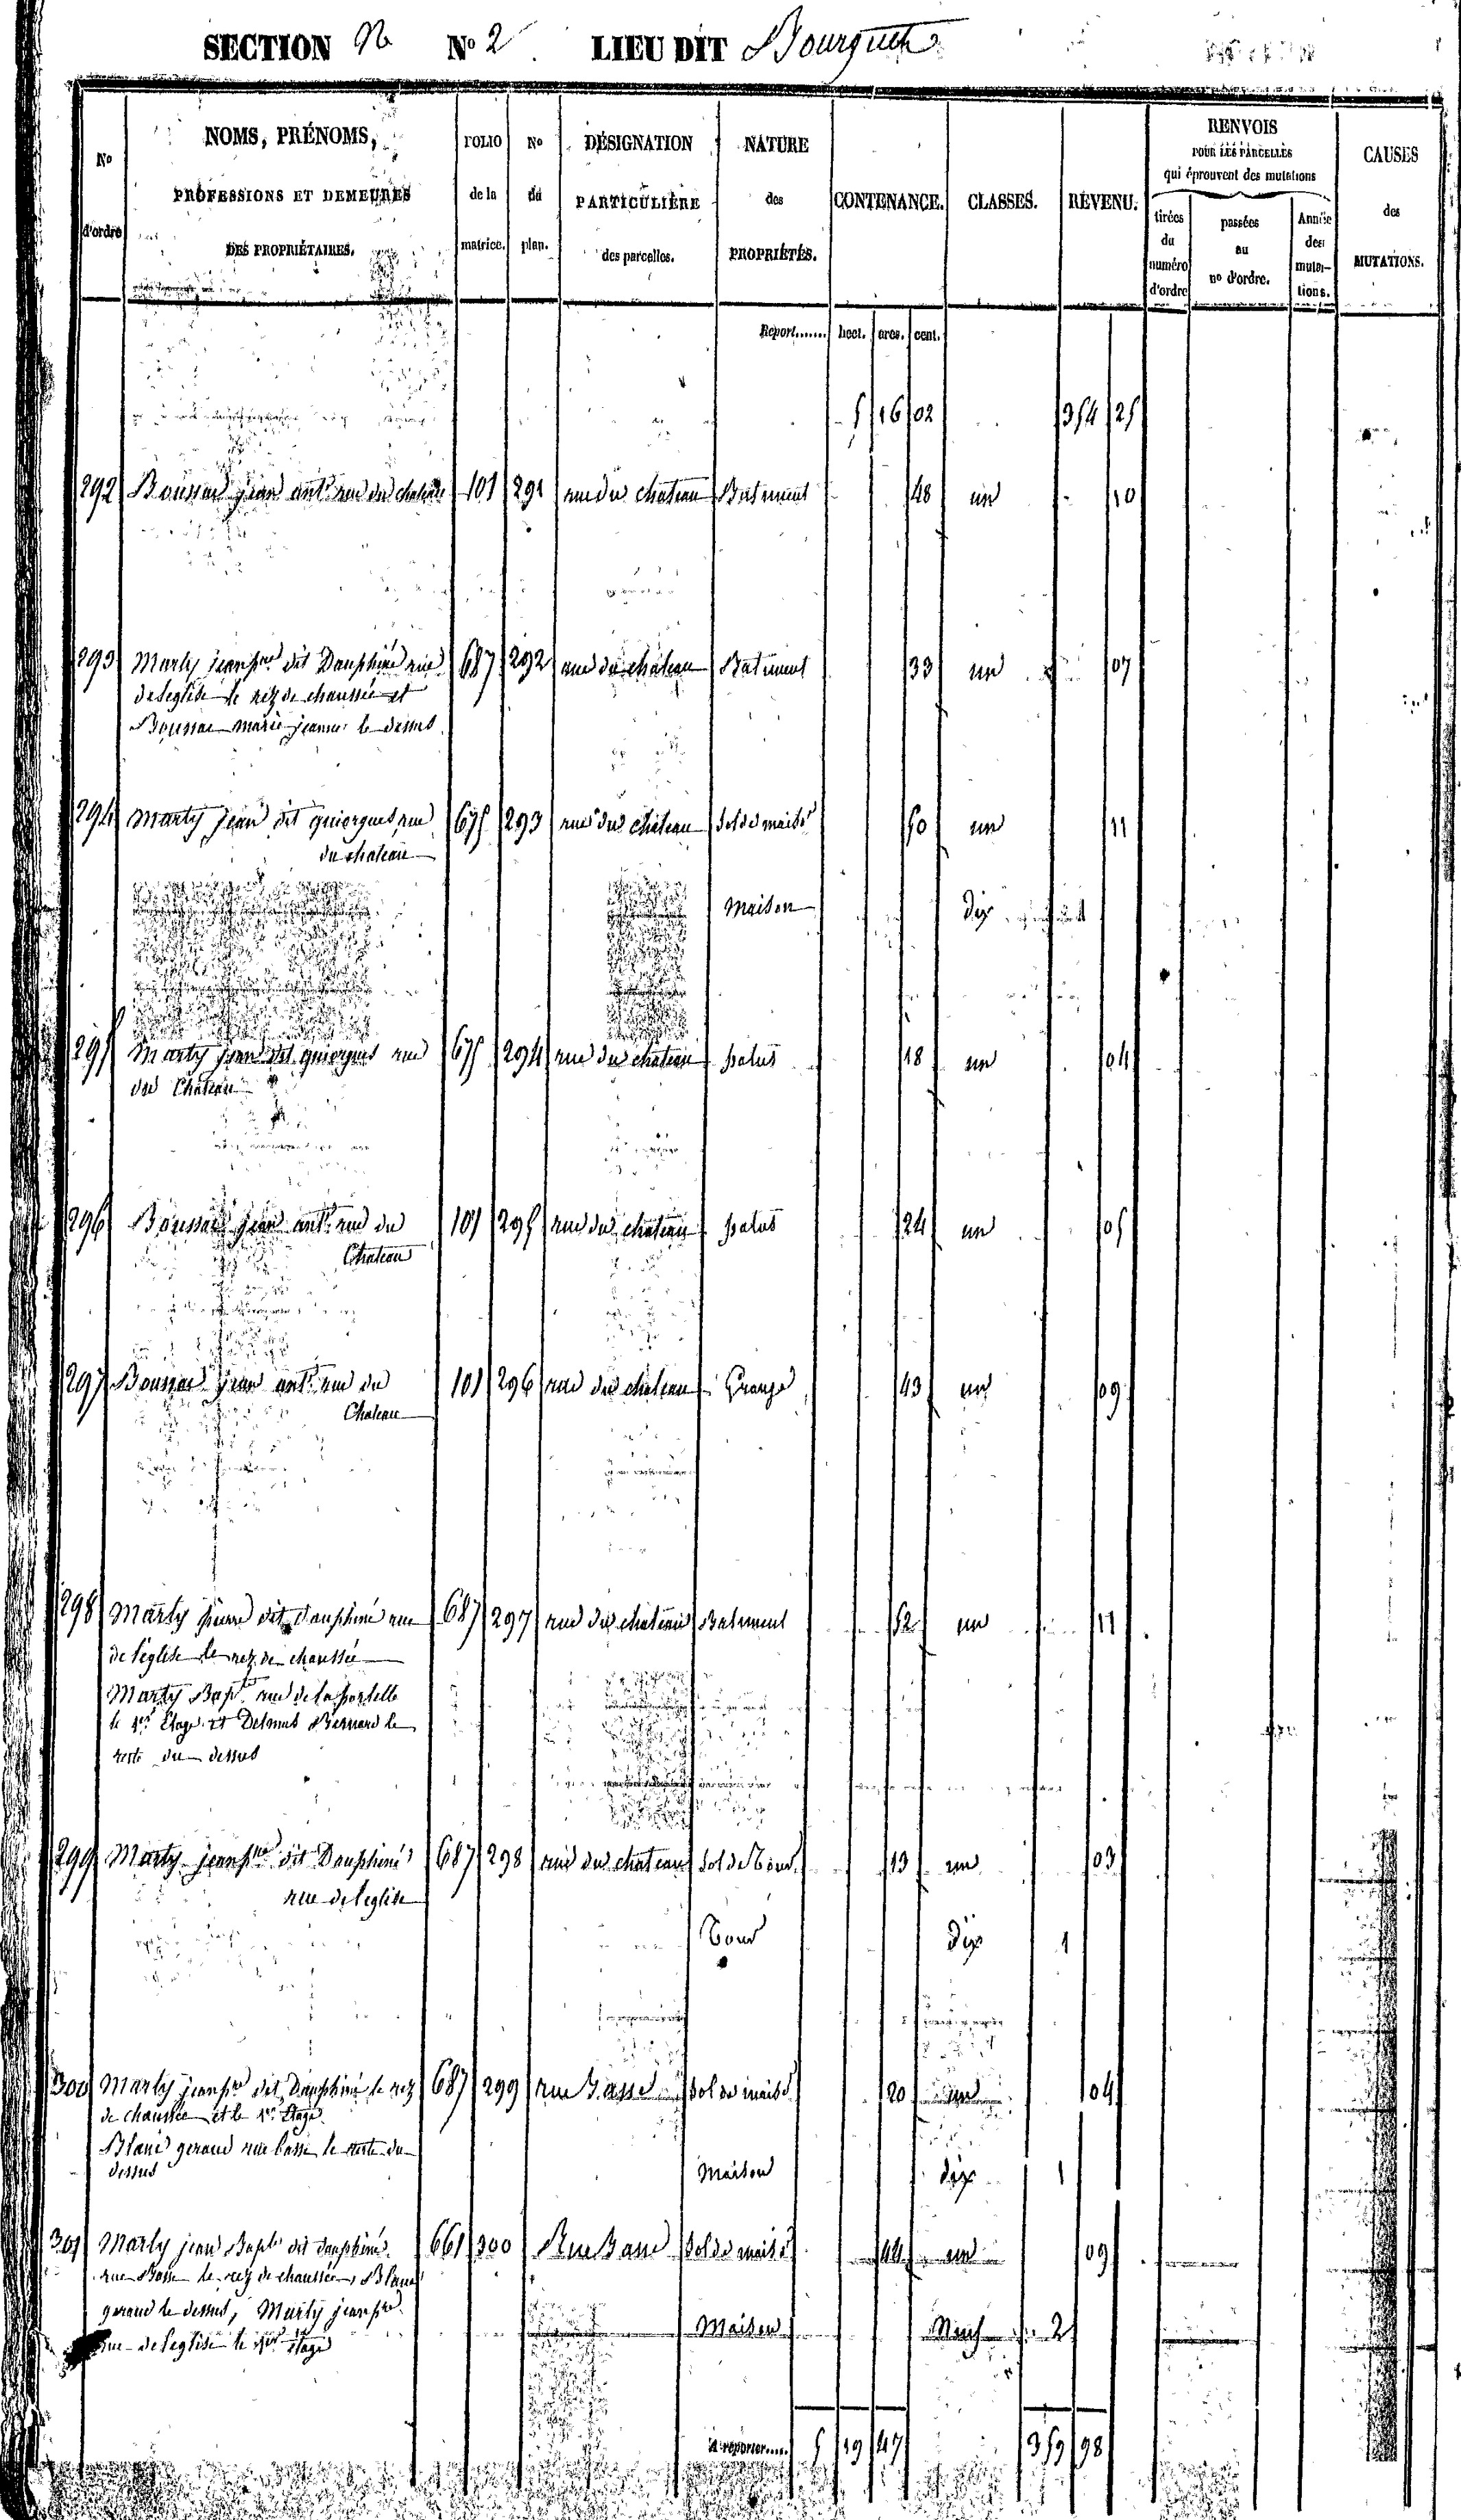 SECTION N No 2 LIEU DIT Bourguet
No d'ordre
NOMS, PRÉNOMS, PROFESSIONS ET DEMEURES DES PROPRIÉTAIRES.
FOLIO de la matrice.
No du plan.
DÉSIGNATION PARTICULIÈRE des parcelles.
NATURE des PROPRIÉTÉS.
CONTENANCE.
CLASSES.
REVENU.
RENVOIS POUR LES PARCELLES qui éprouvent des mutations
tirées du numéro d'ordre
passées au no d'ordre.
Année des mutations.
CAUSES des MUTATIONS.
Report....... hect. ares. cent.
5 16 02 354 25
292 Boussac jean ant. rue du chateau 101 291 rue du chateau Batiment 48 un 10
293 Marty jean pre dit Dauphiné rue 687 292 rue du chateau Batiment 33 un 07
de l'eglise le rez de chaussée et
Boussac marie jeanne le dessus
294 Marty jean dit quiergues rue 675 293 rue du chateau sol de maison 50 un 11
du chateau
Maison dix
295 Marty jean dit quiergues rue 675 294 rue du chateau patus 18 un 04
du Chateau
296 Boussac jean ant. rue du 101 295 rue du chateau patus 24 un 05
Chateau
297 Boussac jean ant. rue du 101 296 rue du chateau Grange 43 un 09
Chateau
298 Marty pierre dit Dauphiné rue 687 297 rue du chateau Batiment 52 un 11
de l'église le rez de chaussée
Marty Bapt. rue de la portelle
le 1er Etage et Delmas Bernard le
reste du dessus
299 Marty jean pre dit Dauphiné 687 298 rue du chateau sol de Tour 13 un 03
rue de l'eglise
Tour dix 1
300 Marty jean pre dit Dauphiné le rez 687 299 rue Basse sol de maison 20 un 04
de chaussée et le 1er Etage
Blanc geraud rue basse le reste du
dessus
Maison dix 1
301 Marty jean Bapte dit dauphiné 661 300 Rue Basse sol de maison 44 un 09
rue Basse le rez de chaussée, Blanc
geraud le dessus, Marty jean pre
rue de l'eglise le 1er Etage
Maison Neuf 2
à reporter.... 5 19 47 359 98